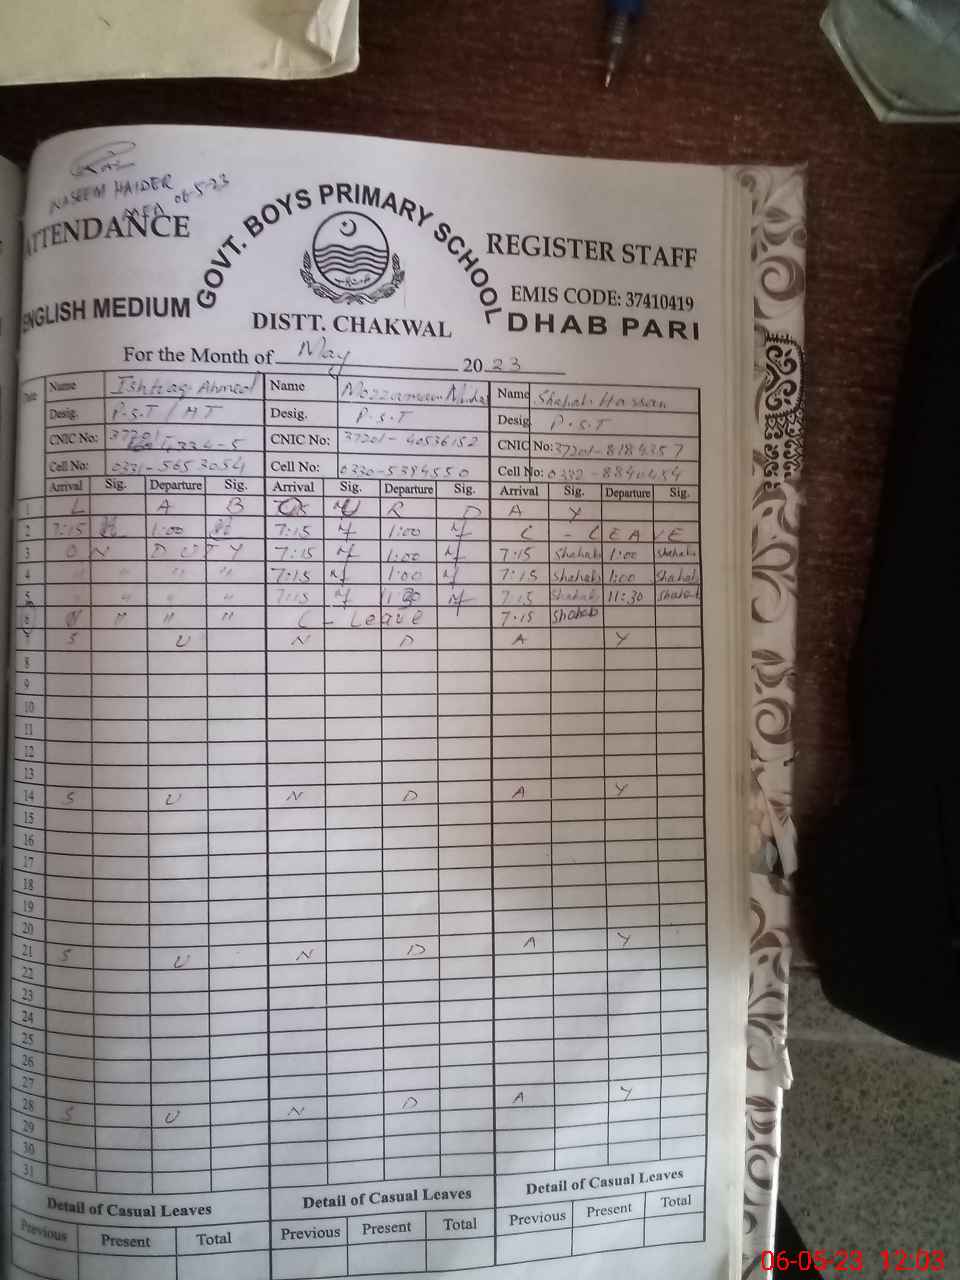 NASEEM HAIDER
AEO 06-5-23
ATTENDANCE
GOVT. BOYS PRIMARY SCHOOL
REGISTER STAFF
ENGLISH MEDIUM
EMIS CODE: 37410419
DISTT. CHAKWAL
DHAB PARI
For the Month of May 2023
Date Name Ishtiaq Ahmed Name Name Shahab Hassan
Desig. P.S.T / HT Desig. P.S.T Desig. P.S.T
CNIC No: 37201 CNIC No: 37201-40536152 CNIC No: 37201-8184357
Cell No: 0331-5653054 Cell No: 0330-5384550 Cell No: 0332-8840454
Arrival Sig. Departure Sig. Arrival Sig. Departure Sig. Arrival Sig. Departure Sig.
1 L A B O U R D A Y
2 7:15 1:00 7:15 1:00 C - LEAVE
3 ON DUTY 7:15 1:00 7:15 Shahab 1:00 Shahab
4 " " " " 7:15 1:00 7:15 Shahab 1:00 Shahab
5 " " " " 7:15 7:15 Shahab 11:30 Shahab
6 " " " C - Leave 7:15 Shahab
7 S U N D A Y
8
9
10
11
12
13
14 S U N D A Y
15
16
17
18
19
20
21 S U N D A Y
22
23
24
25
26
27
28 S U N D A Y
29
30
31
Detail of Casual Leaves Detail of Casual Leaves Detail of Casual Leaves
Previous Present Total Previous Present Total Previous Present Total
06-05-23 12:03